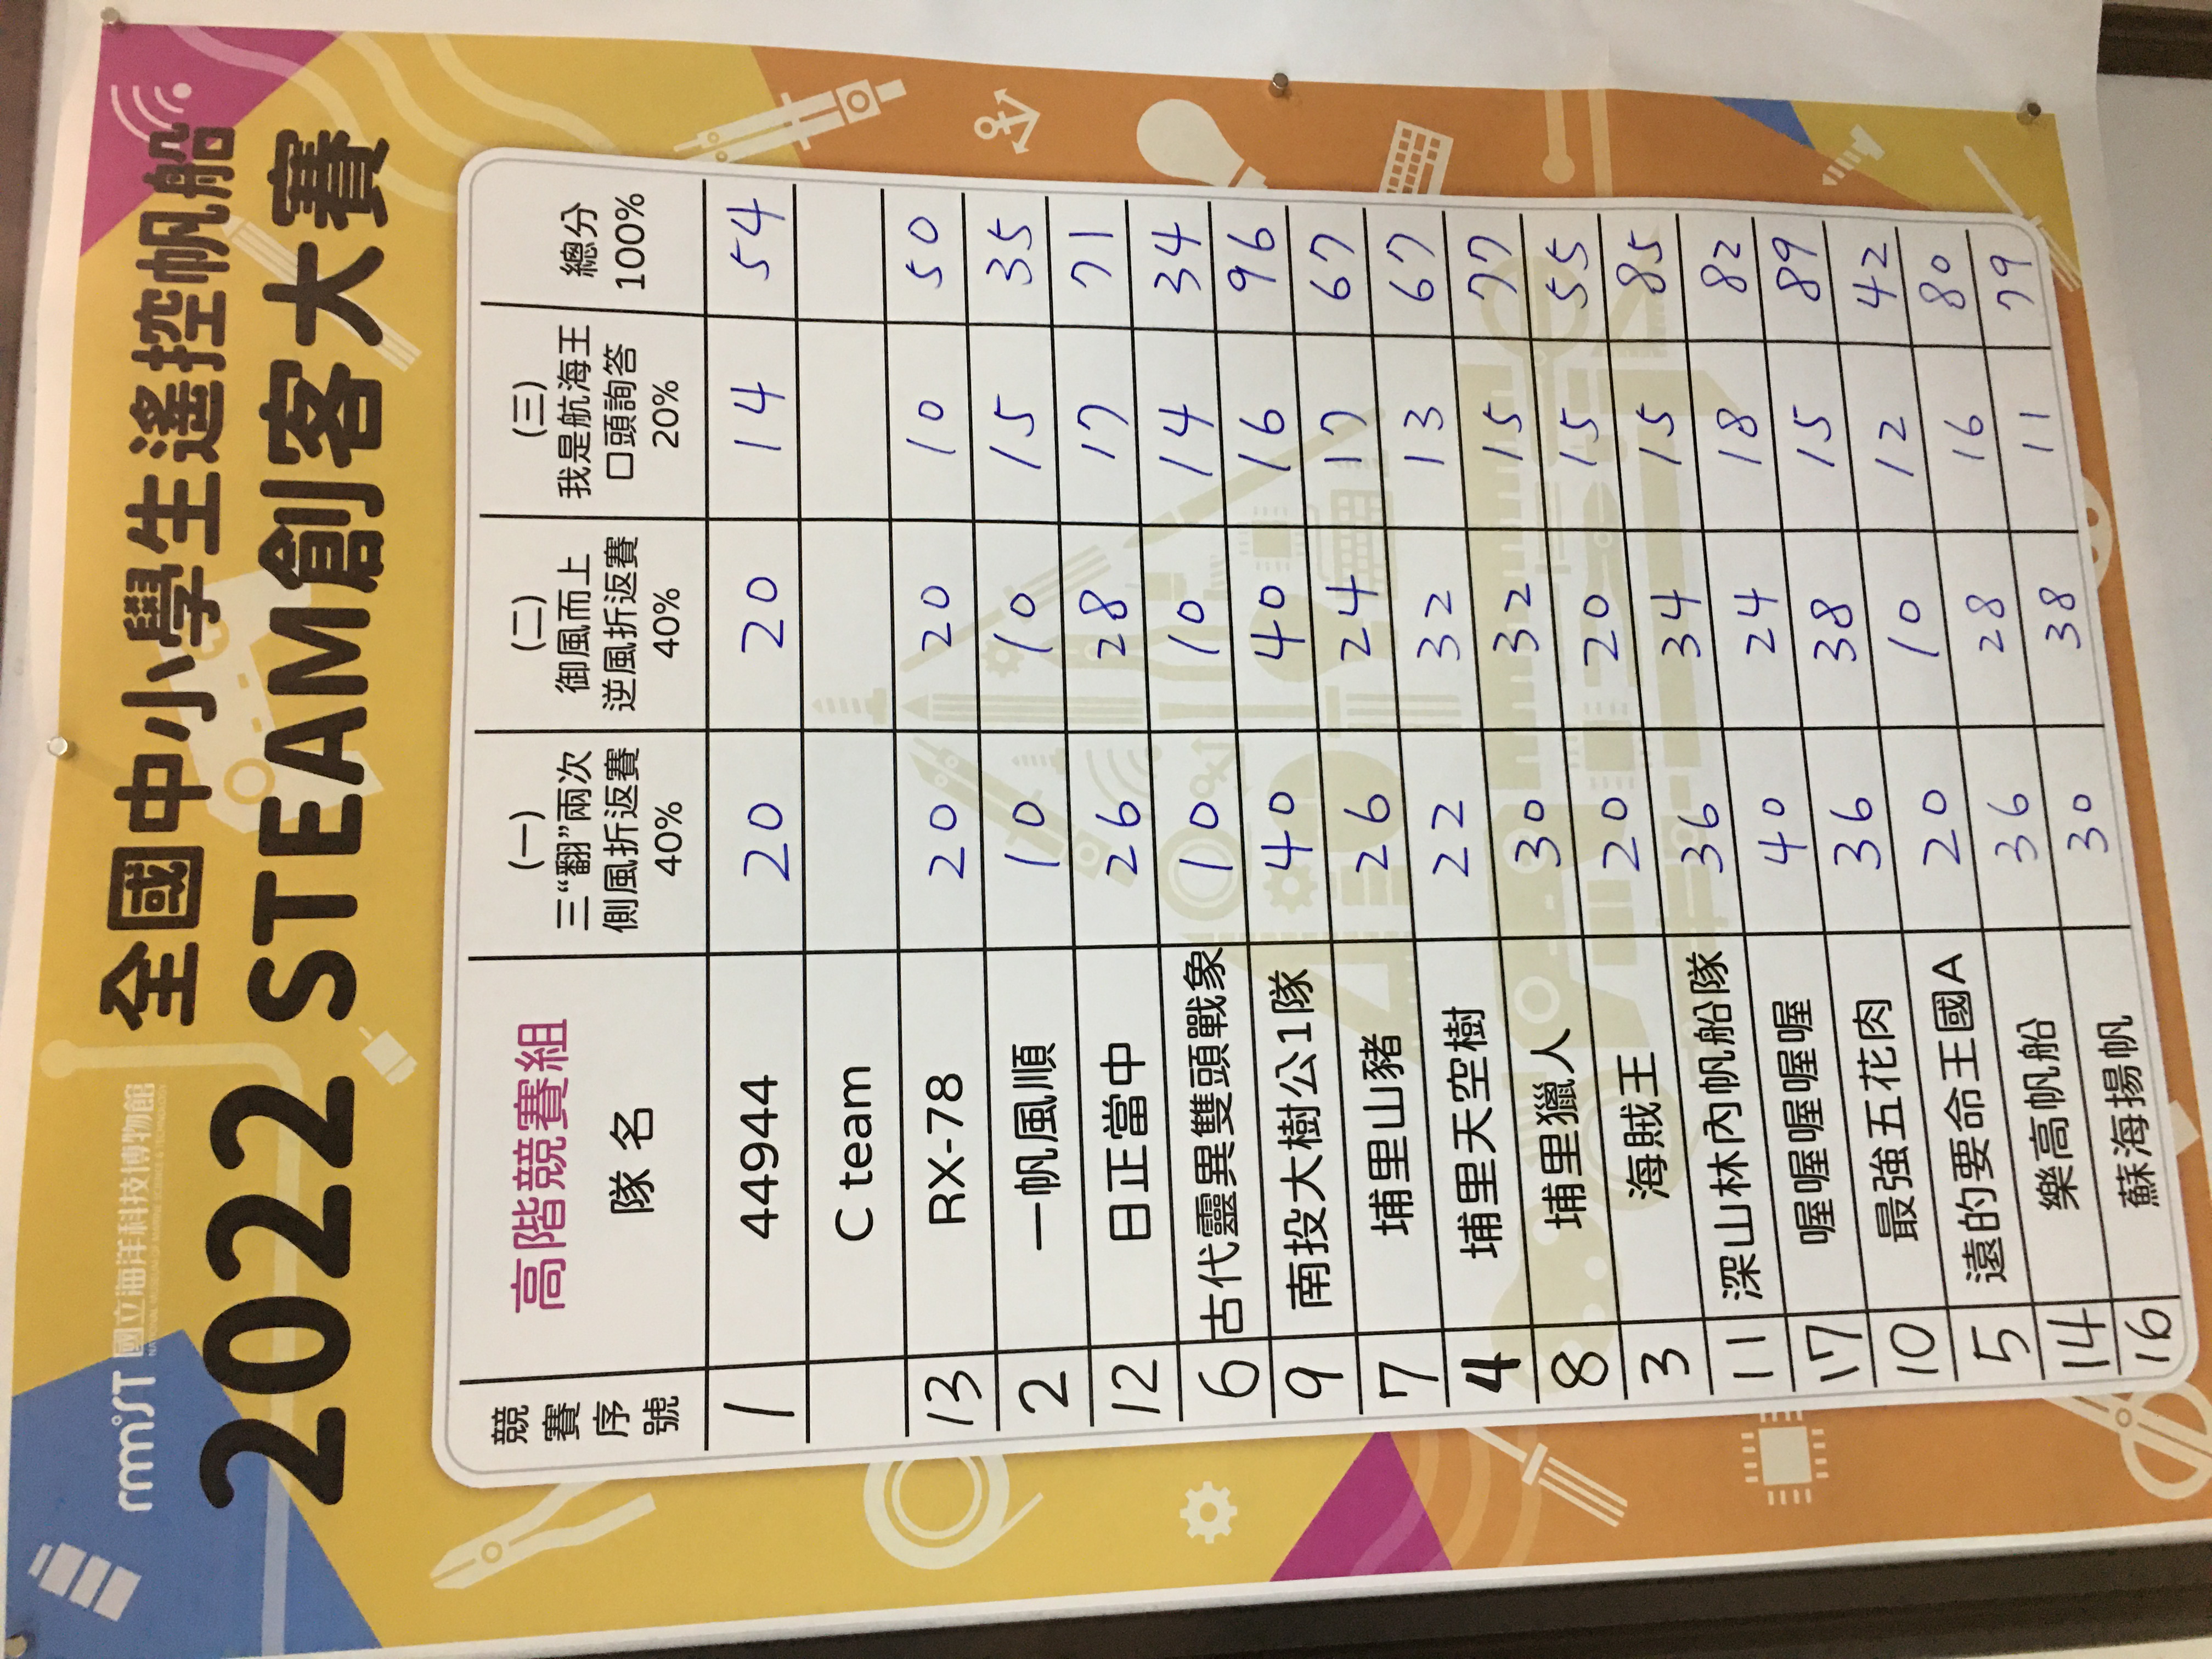 rmmiST 國立海洋科技博物館
NATIONAL MUSEUM OF MARINE SCIENCE & TECHNOLOGY
全國中小學生遙控帆船
2022 STEAM創客大賽
競賽序號 高階競賽組 隊名 (一) 三“翻”兩次 側風折返賽 40% (二) 御風而上 逆風折返賽 40% (三) 我是航海王 口頭詢答 20% 總分 100%
1 44944 20 20 14 54
C team
13 RX-78 20 20 10 50
2 一帆風順 10 10 15 35
12 日正當中 26 28 17 71
6 古代靈異雙頭戰象 10 10 14 34
9 南投大樹公1隊 40 40 16 96
7 埔里山豬 26 24 17 67
4 埔里天空樹 22 32 13 67
8 埔里獵人 30 32 15 77
3 海賊王 20 20 15 55
11 深山林內帆船隊 36 34 15 85
17 喔喔喔喔喔 40 24 18 82
10 最強五花肉 36 38 15 89
5 遠的要命王國A 20 10 12 42
14 樂高帆船 36 28 16 80
16 蘇海揚帆 30 38 11 79